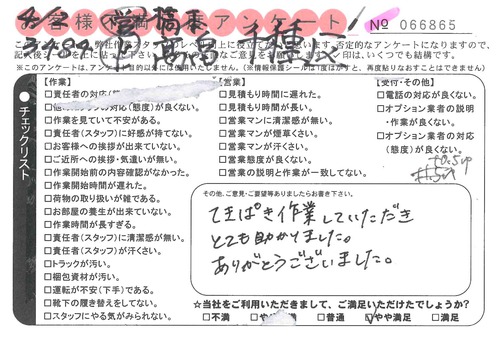 お客様不満調査アンケート！
No 066865
【作業】
□責任者の対応
□作業を見ていて不安がある。
□責任者(スタッフ)に好感が持てない。
□お客様への挨拶が出来ていない。
□ご近所への挨拶・気遣いが無い。
□作業開始前の内容確認がなかった。
□作業開始時間が遅れた。
□荷物の取り扱いが雑である。
□お部屋の養生が出来ていない。
□作業時間が長すぎる。
□責任者(スタッフ)に清潔感が無い。
□責任者(スタッフ)が汗くさい。
□トラックが汚い。
□梱包資材が汚い。
□運転が不安(下手)である。
□靴下の履き替えをしてない。
□スタッフにやる気がみられない。
【営業】
□見積もり時間に遅れた。
□見積もり時間が長い。
□営業マンに清潔感が無い。
□営業マンが煙草くさい。
□営業マンが汗くさい。
□営業態度が良くない。
□営業の説明と作業が一致してない。
【受付・その他】
□電話の対応が良くない。
□オプション業者の説明
・作業が良くない。
□オプション業者の対応
(態度)が良くない。
チェックリスト
その他、ご意見・ご要望等ありましたらお書き下さい。
てきぱき作業していただき
とても助かりました。
ありがとうございました。
☆当社をご利用いただきまして、ご満足いただけたでしょうか？
□不満
□普通
□やや満足
□満足